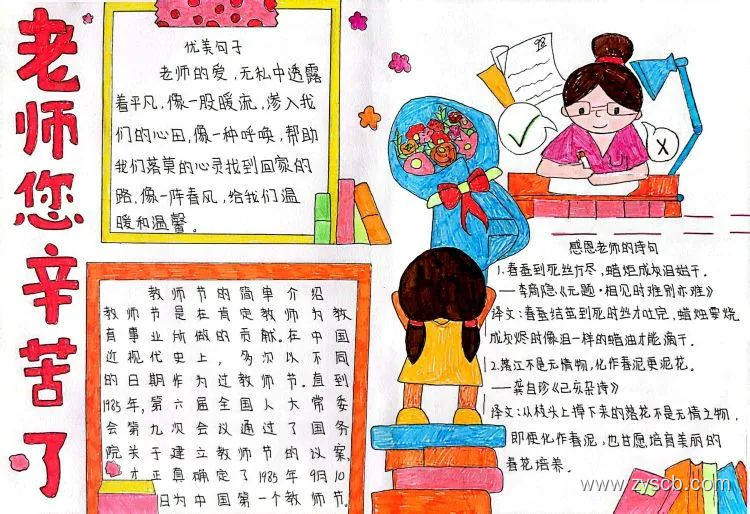 老师您辛苦了
优美句子
老师的爱，无私中透露
着平凡，像一股暖流，渗入我
们的心田，像一种呼唤，帮助
我们落莫的心灵找到回家的
路，像一阵春风，给我们温
暖和温馨。
教师节的简单介绍
教师节是在肯定教师为教
育事业所做的贡献。在中国
近现代史上，多次以不同
的日期作为过教师节。直到
1985年，第六届全国人大常委
会第九次会议通过了国务
院关于建立教师节的议案，
才正真确定了1985年9月10
日为中国第一个教师节。
98
x
感恩老师的诗句
1.春蚕到死丝方尽，蜡炬成灰泪始干。
——李商隐《无题·相见时难别亦难》
译文：春蚕结茧到死时丝才吐完，蜡烛要烧
成灰烬时像泪一样的蜡油才能滴干。
2.落江不是无情物，化作春泥更泥花。
——龚自珍《己亥杂诗》
译文：从枝头上掉下来的落花不是无情之物，
即使化作春泥，也甘愿培育美丽的
春花培养。
www.zyscb.com